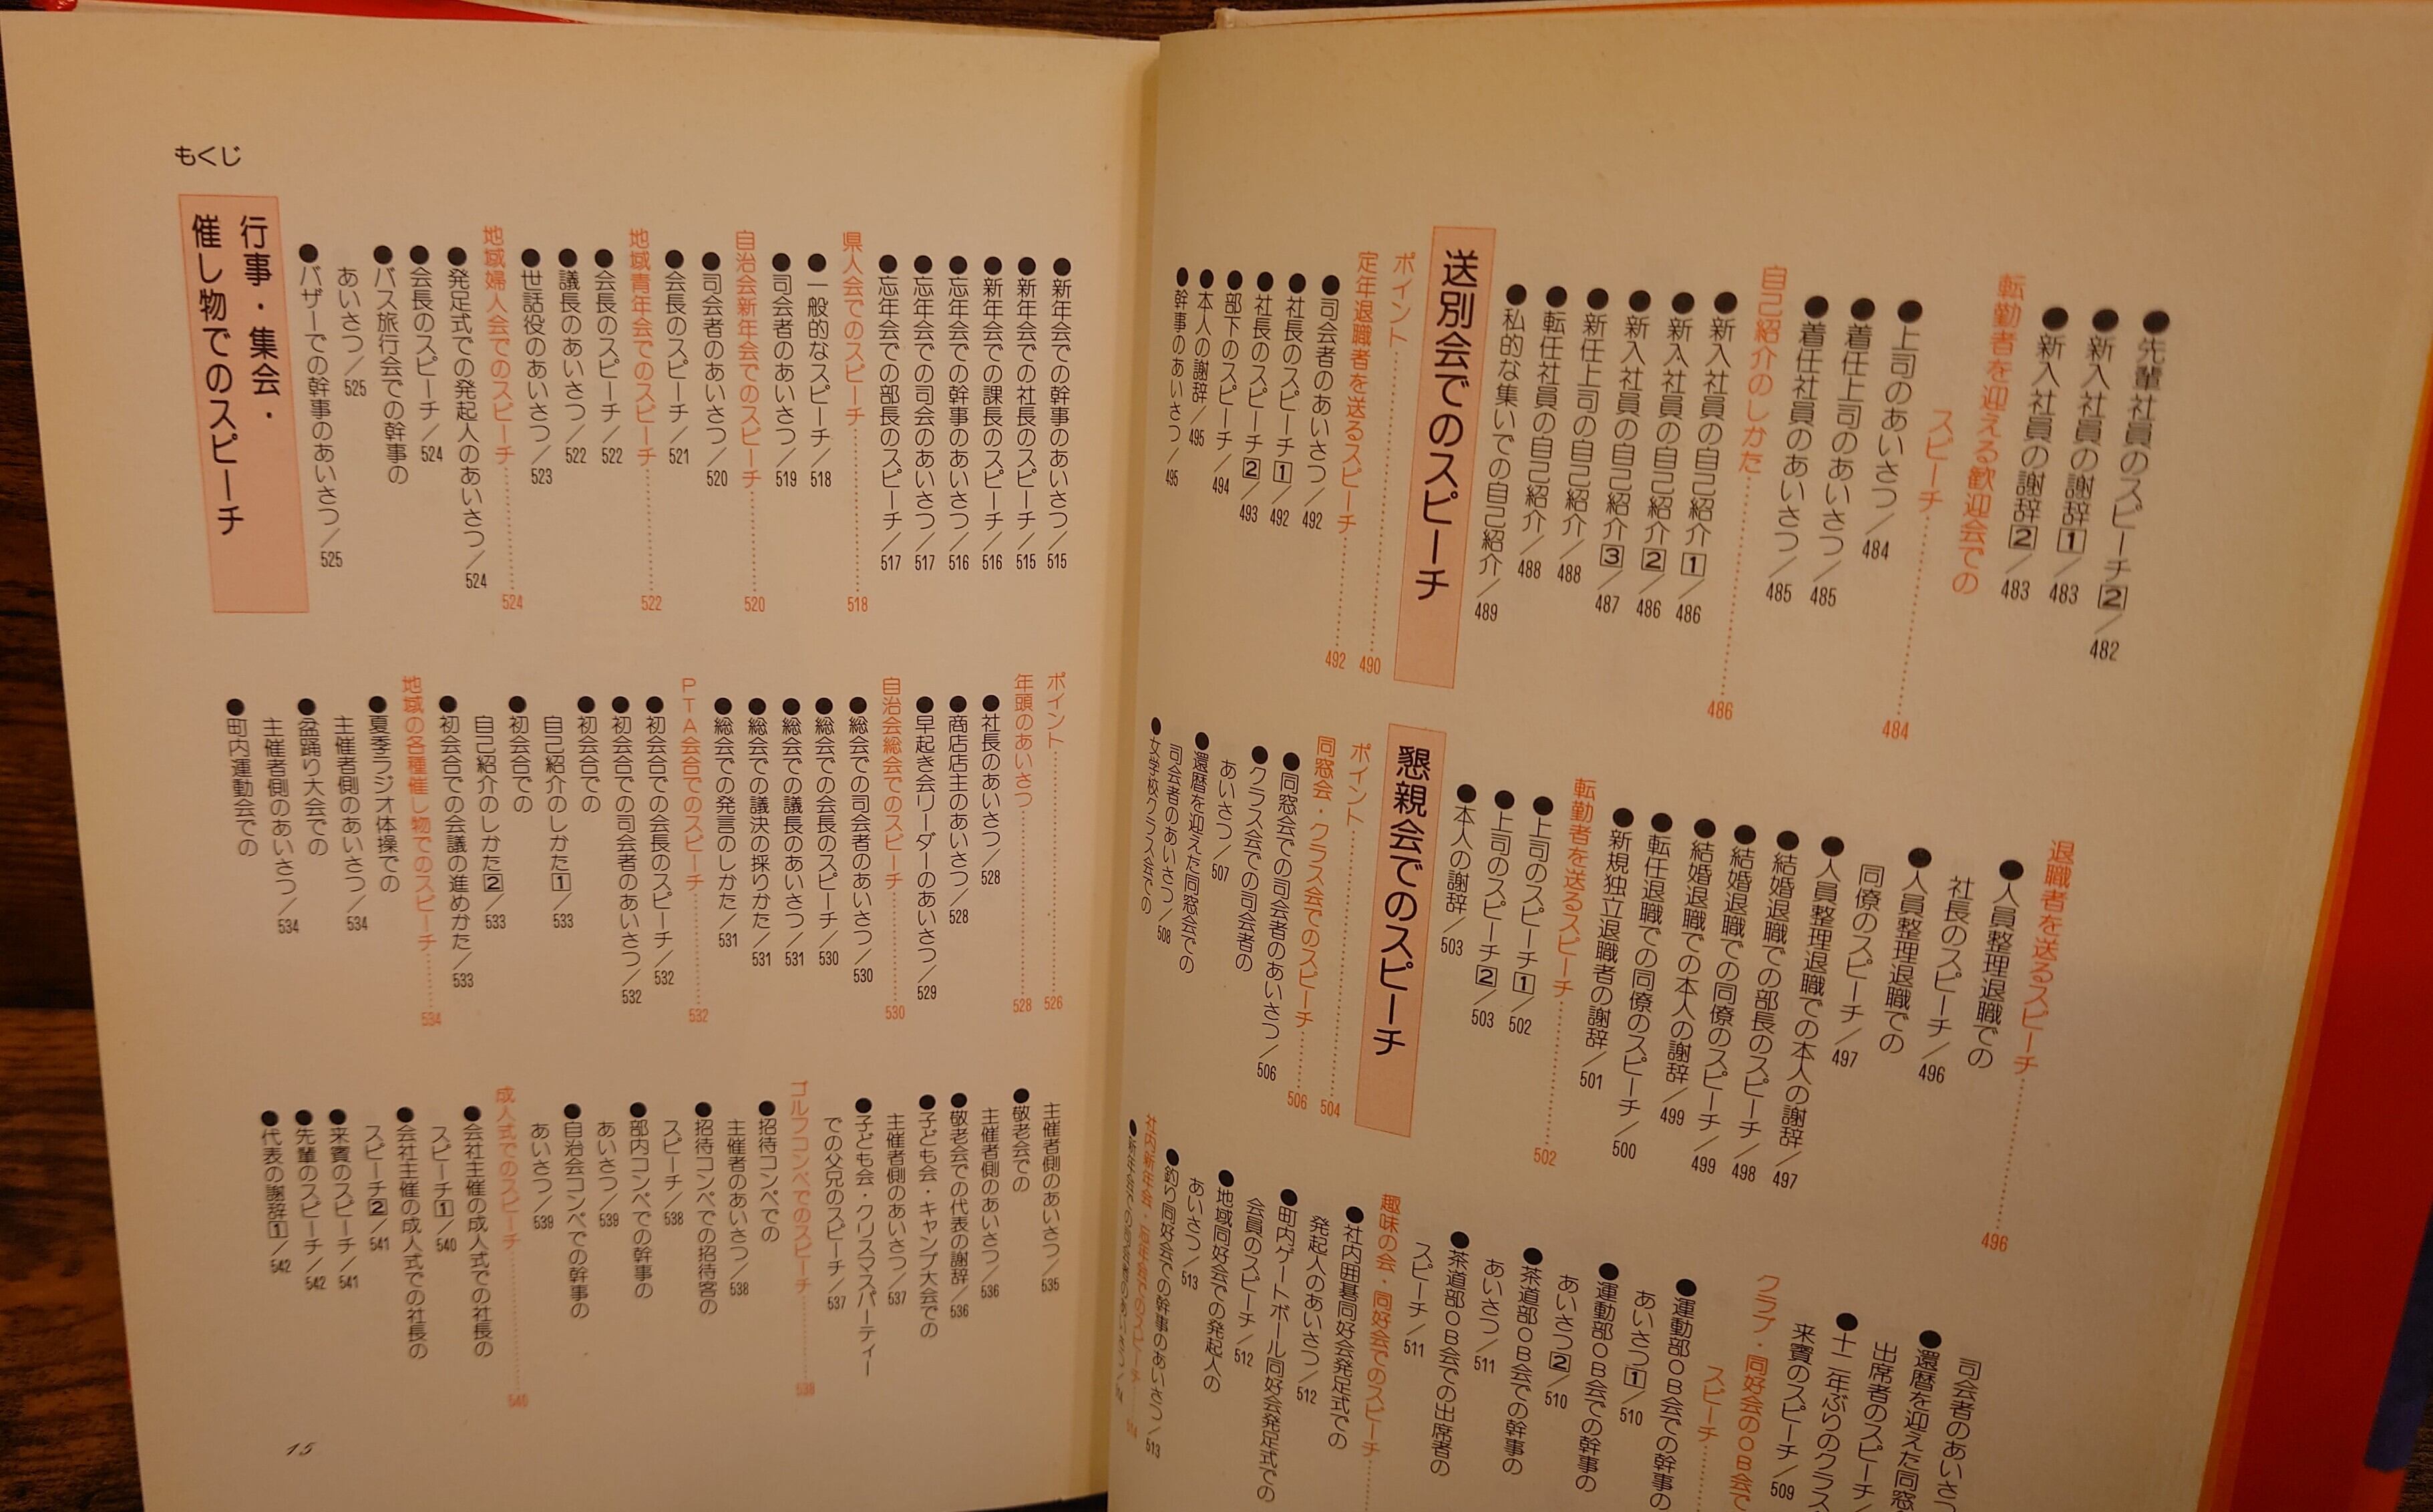 ●先輩社員のスピーチ2／482
●新入社員の謝辞1／483
●新入社員の謝辞2／483
転勤者を迎える歓迎会での
スピーチ……484
●上司のあいさつ／484
●着任上司のあいさつ／485
●着任社員のあいさつ／485
自己紹介のしかた……486
●新入社員の自己紹介1／486
●新入社員の自己紹介2／486
●新入社員の自己紹介3／487
●新任上司の自己紹介／488
●転任社員の自己紹介／488
●私的な集いでの自己紹介／489
送別会でのスピーチ
ポイント……490
定年退職者を送るスピーチ……492
●司会者のあいさつ／492
●社長のスピーチ1／492
●社長のスピーチ2／493
●部下のスピーチ／494
●本人の謝辞／495
●幹事のあいさつ／495
退職者を送るスピーチ……496
●人員整理退職での
社長のスピーチ／496
●人員整理退職での
同僚のスピーチ／497
●人員整理退職での本人の謝辞／497
●結婚退職での部長のスピーチ／498
●結婚退職での同僚のスピーチ／499
●結婚退職での本人の謝辞／499
●転任退職での同僚のスピーチ／500
●新規独立退職者の謝辞／501
転勤者を送るスピーチ……502
●上司のスピーチ1／502
●上司のスピーチ2／503
●本人の謝辞／503
懇親会でのスピーチ
ポイント……504
同窓会・クラス会でのスピーチ……506
●同窓会での司会者のあいさつ／506
●クラス会での司会者の
あいさつ／507
●還暦を迎えた同窓会での
司会者のあいさつ／508
●女学校クラス会での
司会者のあいさつ
●還暦を迎えた同窓
出席者のスピーチ／
●十二年ぶりのクラス
来賓のスピーチ／509
クラブ・同好会のOB会で
スピーチ……
●運動部OB会での幹事の
あいさつ1／510
●運動部OB会での幹事の
あいさつ2／510
●茶道部OB会での幹事の
あいさつ／511
●茶道部OB会での出席者の
スピーチ／511
趣味の会・同好会でのスピーチ……
●社内囲碁同好会発足式での
発起人のあいさつ／512
●町内ゲートボール同好会発足式での
会員のスピーチ／512
●地域同好会での発起人の
あいさつ／513
●釣り同好会での幹事のあいさつ／513
社内新年会・忘年会でのスピーチ……514
もくじ
●新年会での幹事のあいさつ／515
●新年会での社長のスピーチ／515
●新年会での課長のスピーチ／516
●忘年会での幹事のあいさつ／516
●忘年会での司会のあいさつ／517
●忘年会での部長のスピーチ／517
県人会でのスピーチ……518
●一般的なスピーチ／518
●司会者のあいさつ／519
自治会新年会でのスピーチ……520
●司会者のあいさつ／520
●会長のスピーチ／521
地域青年会でのスピーチ……522
●会長のスピーチ／522
●議長のあいさつ／522
●世話役のあいさつ／523
地域婦人会でのスピーチ……524
●発足式での発起人のあいさつ／524
●会長のスピーチ／524
●バス旅行会での幹事の
あいさつ／525
●バザーでの幹事のあいさつ／525
行事・集会・
催し物でのスピーチ
ポイント……526
年頭のあいさつ……528
●社長のあいさつ／528
●商店店主のあいさつ／528
●早起き会リーダーのあいさつ／529
自治会総会でのスピーチ……530
●総会での司会者のあいさつ／530
●総会での会長のスピーチ／530
●総会での議長のあいさつ／531
●総会での議決の採りかた／531
●総会での発言のしかた／531
PTA会合でのスピーチ……532
●初会合での会長のスピーチ／532
●初会合での司会者のあいさつ／532
●初会合での
自己紹介のしかた1／533
●初会合での
自己紹介のしかた2／533
●初会合での会議の進めかた／533
地域の各種催し物でのスピーチ……534
●夏季ラジオ体操での
主催者側のあいさつ／534
●盆踊り大会での
主催者側のあいさつ／534
●町内運動会での
主催者側のあいさつ／535
●敬老会での
主催者側のあいさつ／536
●敬老会での代表の謝辞／536
●子ども会・キャンプ大会での
主催者側のあいさつ／537
●子ども会・クリスマスパーティー
での父兄のスピーチ／537
ゴルフコンペでのスピーチ……538
●招待コンペでの
主催者のあいさつ／538
●招待コンペでの招待客の
スピーチ／538
●部内コンペでの幹事の
あいさつ／539
●自治会コンペでの幹事の
あいさつ／539
成人式でのスピーチ……540
●会社主催の成人式での社長の
スピーチ1／540
●会社主催の成人式での社長の
スピーチ2／541
●来賓のスピーチ／541
●先輩のスピーチ／542
●代表の謝辞1／542
15